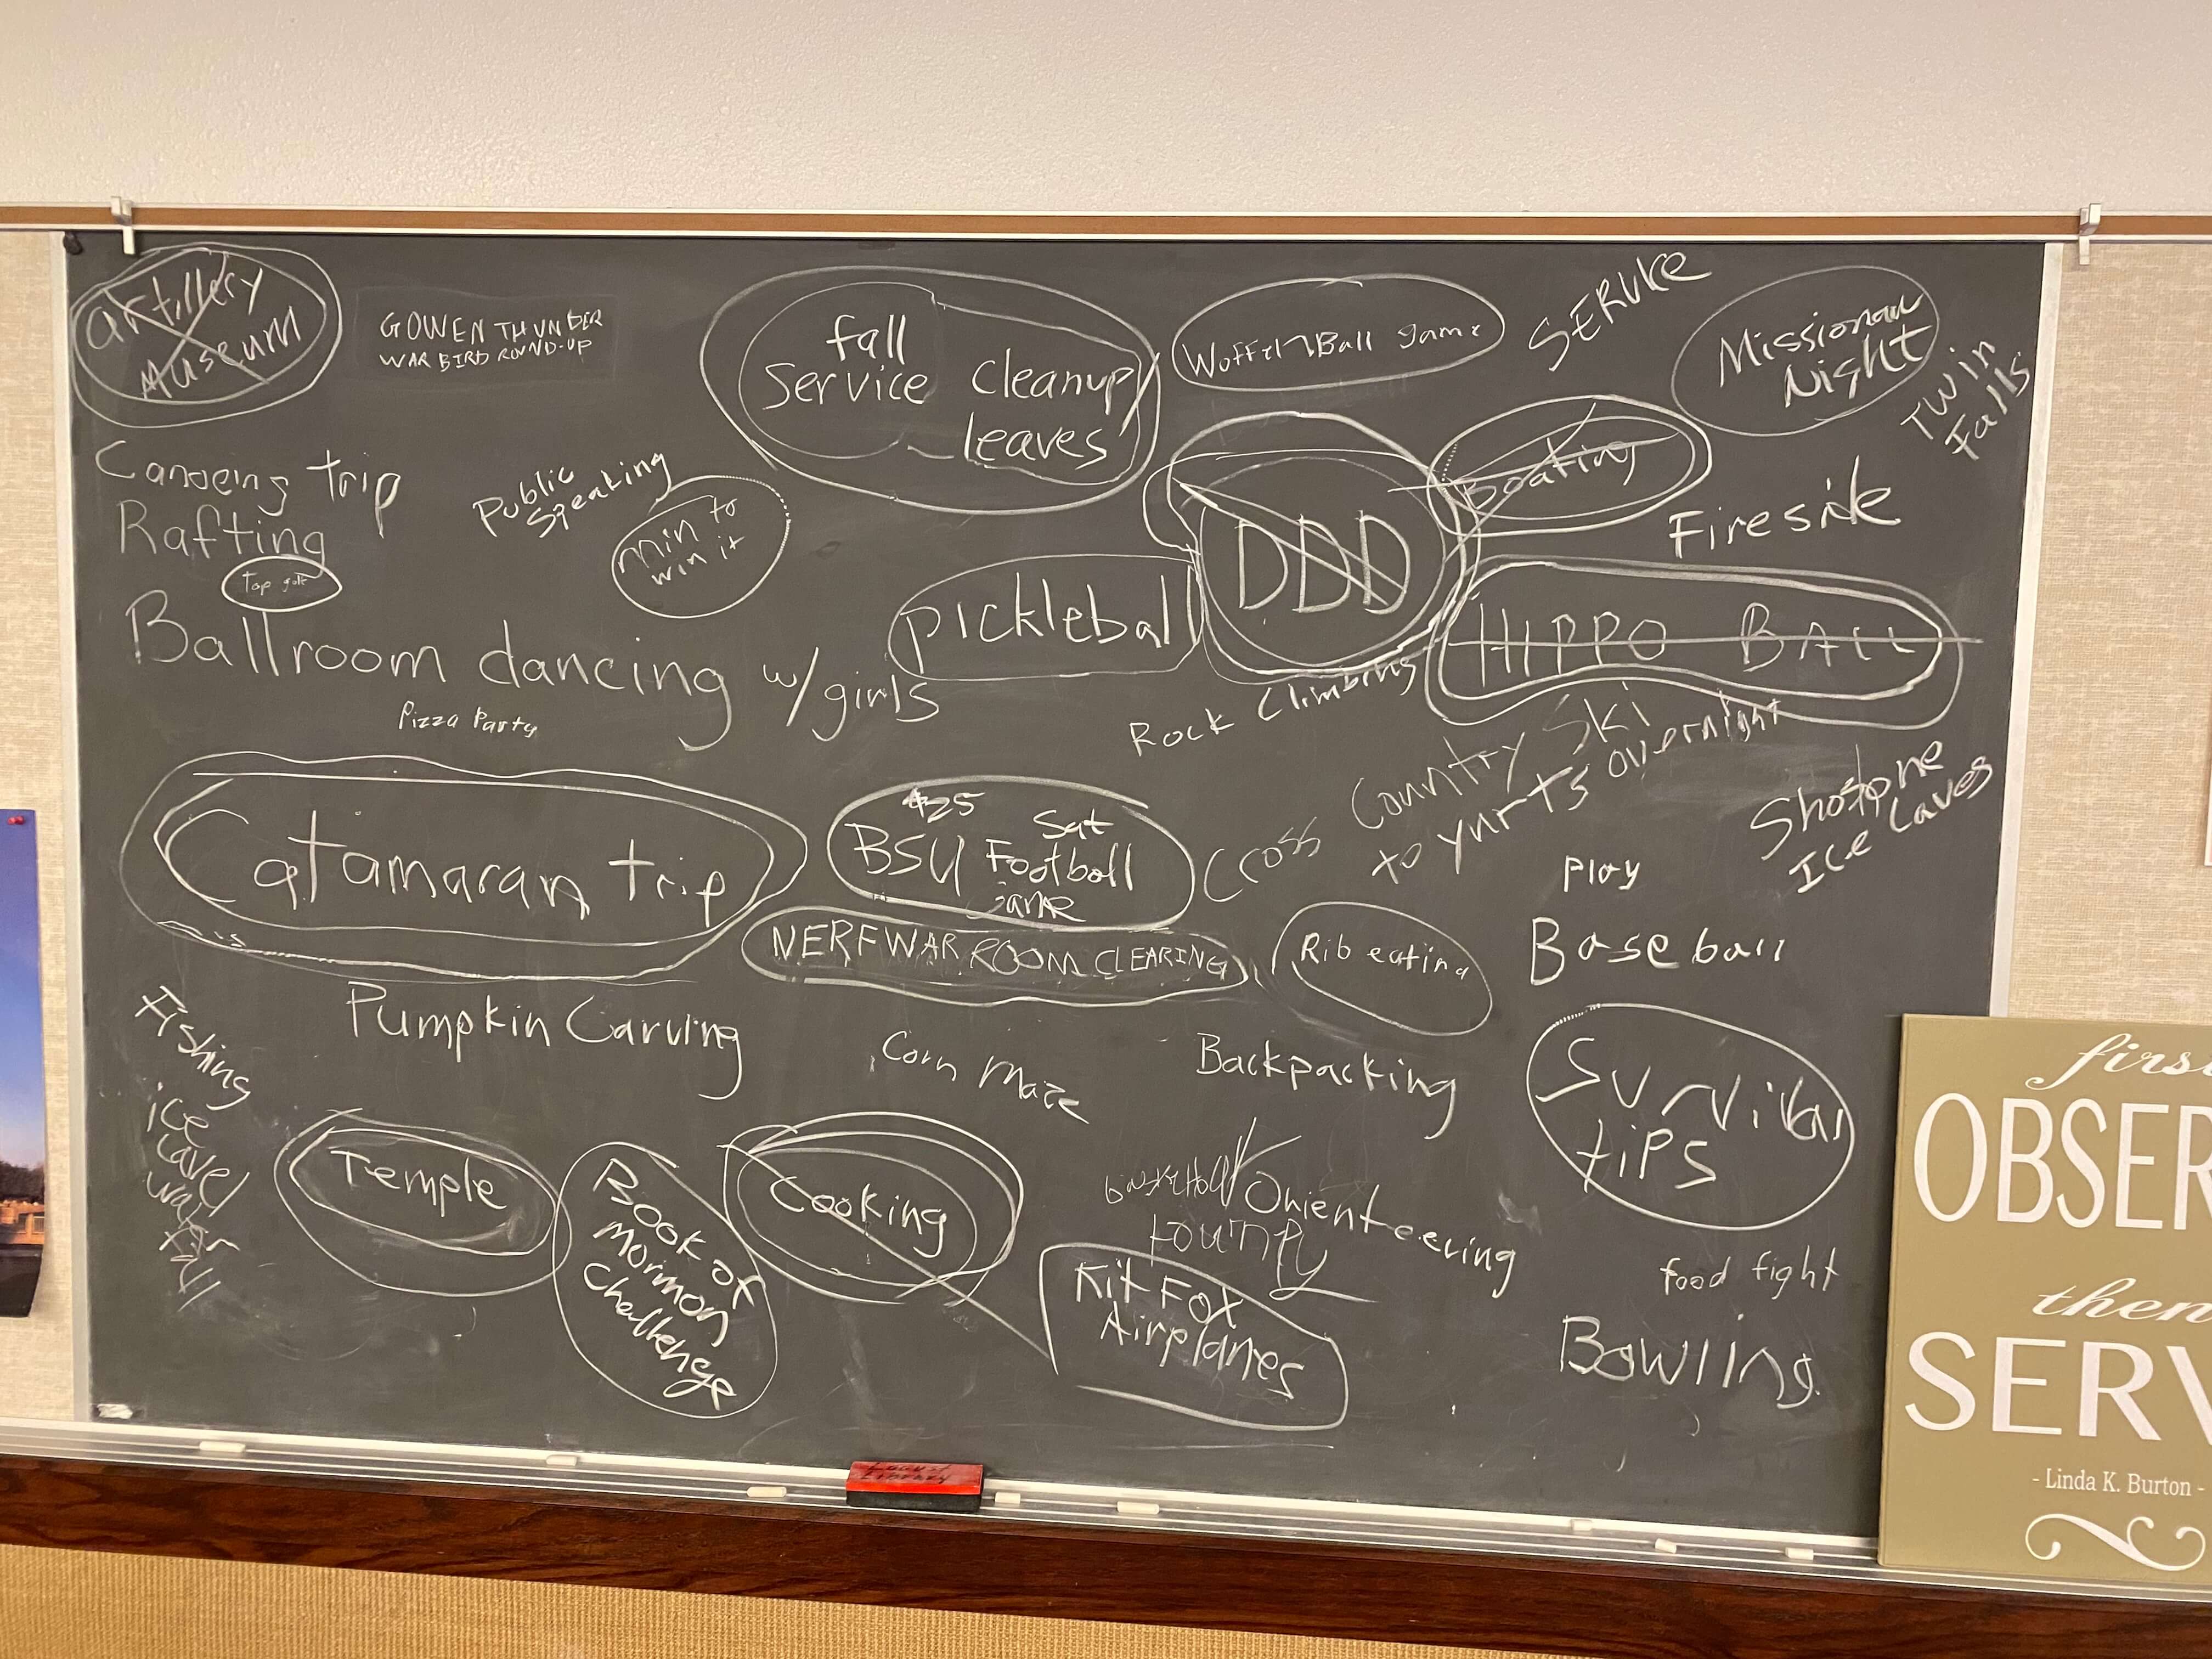 artillery
Museum
GOWEN THUNDER
WAR BIRD ROUND-UP
fall
Service Cleanup
leaves
Woffel Ball game
SERVICE
Missionary
Night
Twin
Falls
Canoeing trip
Rafting
Top golf
Public
Speaking
min to
win it
DDD
Boating
Fireside
Ballroom dancing w/girls
Pizza Party
pickleball
HIPPO BALL
Rock Climbing
Cross Country Ski
to yurts overnight
Shoshone
Ice Caves
Catamaran trip
$25 Sat
BSU Football
Game
NERF WAR ROOM CLEARING
Rib eating
Play
Baseball
Fishing
ice
cave
water
fall
Pumpkin Carving
Corn Maze
Backpacking
Survival
tips
Temple
Book of
Mormon
Challenge
Cooking
basketball
tourny
Orienteering
Kit Fox
Airplanes
food fight
Bowling
first
OBSER
then
SERV
- Linda K. Burton -
LIBRARY